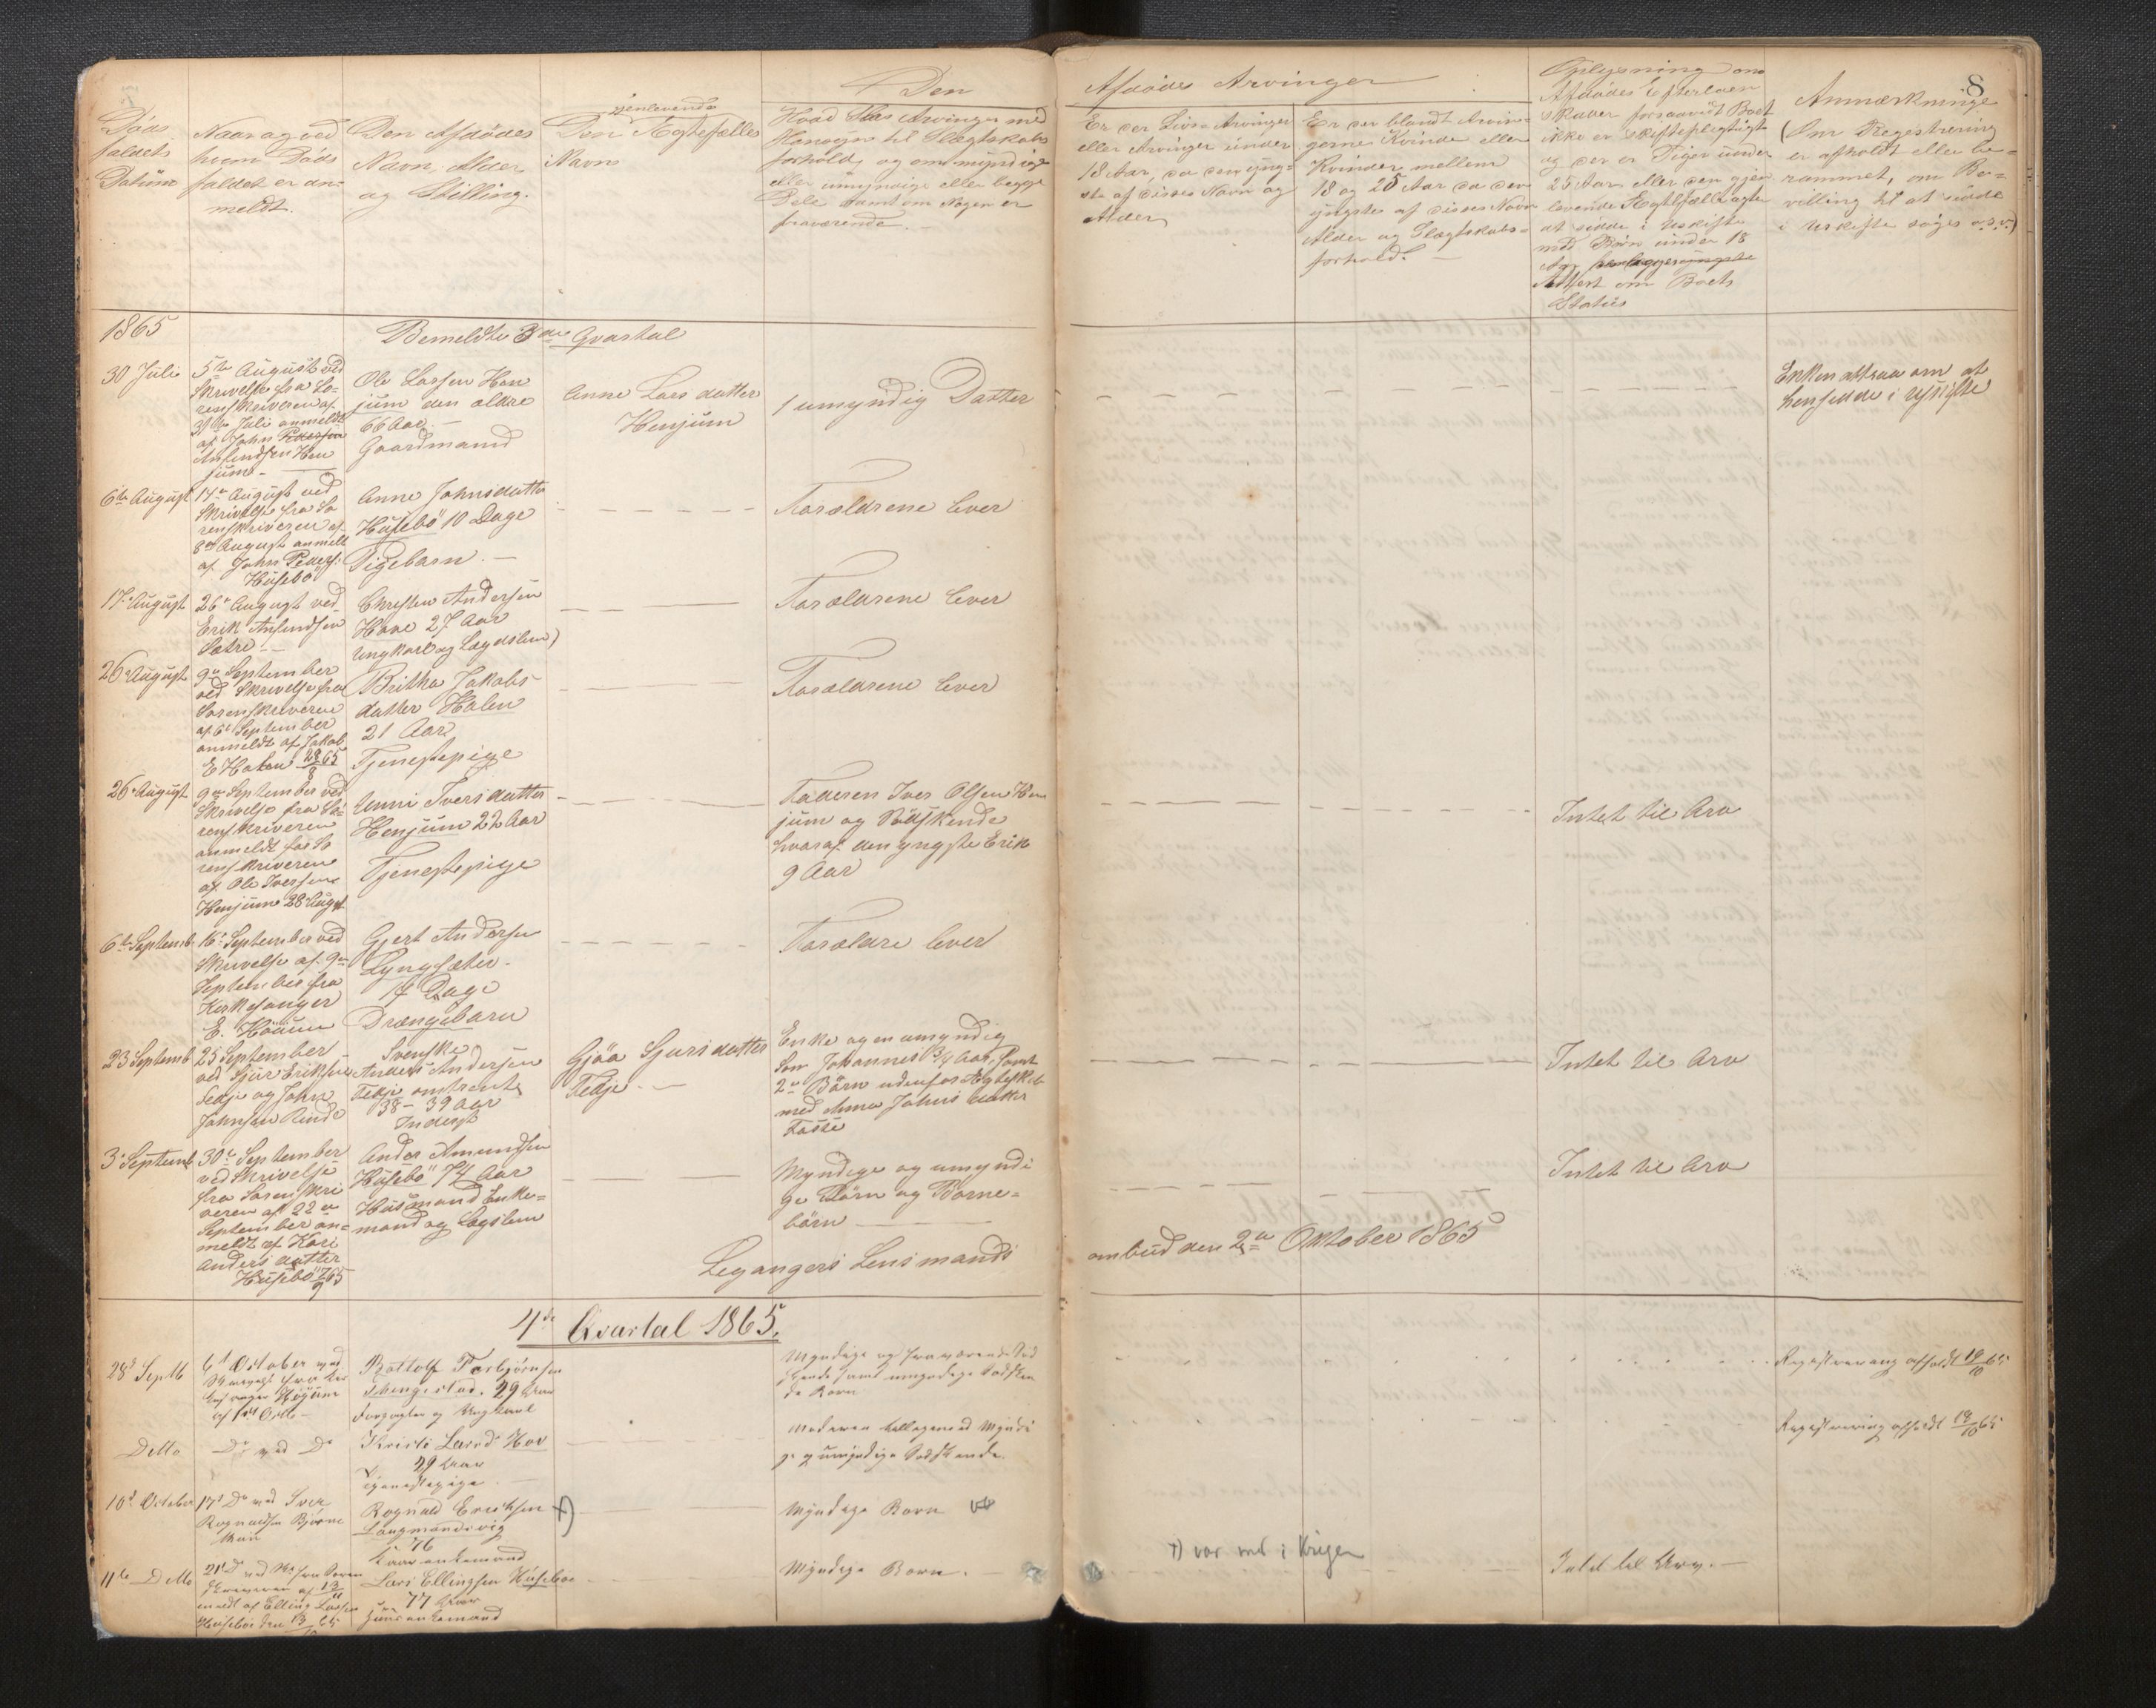 8
Døds
faldets
Datum
Naar og ved
hvem Døds
faldet er an-
meldt.
Den Afdødes
Navn, Alder
og Stilling.
Den gjenlevende Ægtefælles
Navn
Den
Hvad Slags Arvinger med
Hensyn til Slægtskabs
forhold, og om myndige
eller umyndige eller begge
Dele samt om Nogen er
fraværende. -
Afdødes Arvinger
Er der Livs Arvinger
eller Arvinger under
18 Aar, da den yng-
ste af disses Navn og
Alder
Er der blandt Arvin-
gerne Kvinde eller
Kvinder mellem
18 og 25 Aar da den
yngste af disses Navn
Alder og Slægtskabs-
forhold. -
Oplysning om
Afdødes Efterladen
skaber forsaavidt Boet
ikke er skiftepligtigt
og der er Piger under
25 Aar eller den gjen
levende Ægtefælle agter
at sidde i Uskifte
med Børn under 18
Aar
Attest om Boets
Status
Anmærkninger
(Om Registrering
er afholdt eller be-
rammet, om Be-
villing til at sidde
i Uskifte søges o.s.v.)
1865
Bemeldte 3die Qvartal
30 Juli
5te August ved
Skrivelse fra So-
renskriveren af
31te Juli anmeldt
af John Pedersen
Ansendsen Hen
jum -
Ole Larsen Hen
jum den ældre
66 Aar. -
Gaardmand
Anne Larsdatter
Henjum
1 umyndig Datter
Enken attraar om at
hensidde i Uskifte
6te August
14de August ved
Skrivelse fra So
renskriveren af
8de August anmeldt
af John Peders:
Husebö
Anne Johnsdatter
Husebö 10 Dage
Pigebarn. -
Forældrene lever
17de August
26de August ved
Erik Ansendsen
Sætre. -
Christen Andersen
Hove 27 Aar
Ungkarl og Lægdslem)
Forældrene lever
26de August
9de September
ved Skrivelse fra
Sorenskriveren
af 6te September
anmeldt af Jakob
E Halen 28/8 65
Britha Jakobs-
datter Halen
21 Aar
Tjenestepige
Forældrene lever
26de August
9de September ved
Skrivelse fra So-
renskriveren
anmeldt for So
renskriveren
af Ole Iversen
Henjum 28 August
Unni Iversdatter
Henjum 22 Aar
Tjenestepige
Faderen Iver Olsen Hen
jum og Södskende
hvoraf den yngste Erik
9 Aar
Intet til Arv
6te Septemb
16de September ved
Skrivelse af 9de
September fra
Kirkesanger
E. Höium
Gjert Andersen
Lyngsæter.
14 Dage
Drængebarn
Forældre lever
23 Septemb
25 September
ved Sjur Eriksen
Fedje og John
Johnsen Rinde
Svenske
Anders Andersen
Fedje omtrent
38 - 39 Aar
Inderst
Gjöa Sjursdatter
Fedje. -
Enke og en umyndig
Sön Johannes 3/4 Aar, samt
2de Börn udenfor Ægteskab
med Anna Johnsdatter
Intet til Arv
3de Septemb
30te September
ved Skrivelse
fra Sorenskri
veren af 22de
September an-
meldt af Kari
Andersdatter
Husebö 7/9 65
Anders Amundsen
Husebö 74 Aar
Husmand Enke-
mand og Lægslem
Myndige og umyndi
ge Börn og Börne-
börn
Intet til Arv
Legangers Lensmands
ombud den 2den Oktober 1865
4de Kvartal 1865.
28de Septb
6te October ved
Skrivelse fra Kir
kesanger Höyum
af 1ste Octb -
Rottolf Torbjörnsen
29 Aar
Forpagter og Ungkarl
Myndige og fraværende Söd
skende samt umyndige Södsken
de Börn
Registrering afholdt 19/10 65
Ditto
Do ved Do
Kristi Larsd Hov
29 Aar
Tjenestepige.
Moderen tilligemed Myndi
ge og umyndige Södskende.
Registrering afholdt 19/10 65
10de October
17de Do ved Iver
Rognaldsen Björne
Rognald Erichsen x)
Laugmandsvig
76
Aar enkemand
Myndige Börn
x) var med i Krigen
11te Ditto
21de Do ved Sk. fra Soren
skriveren af 13
meldt af Elling Larsen
Huseböe den 13/10 65
Lars Ellingsen Huseböe
77 Aar
Huus enkemand
Myndige Börn.
Intet til Arv. -